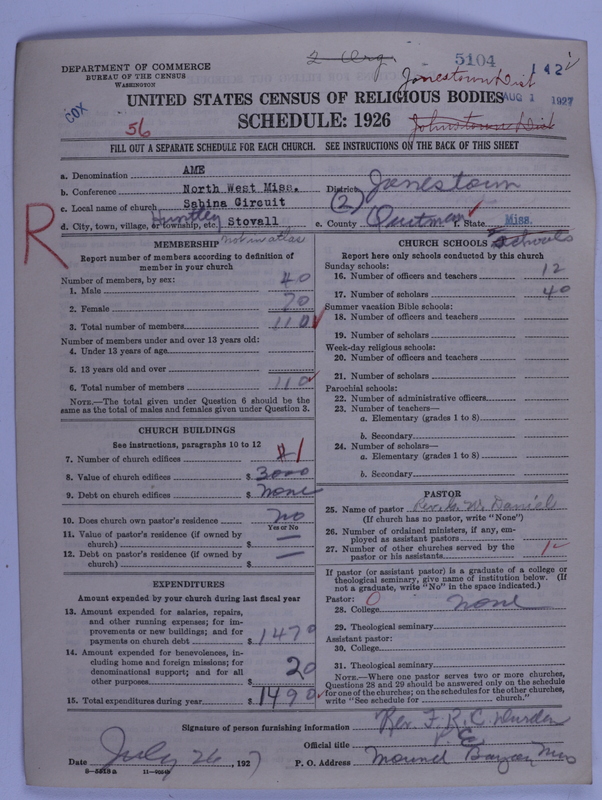 2 Org.
5104
142
DEPARTMENT OF COMMERCE
BUREAU OF THE CENSUS
WASHINGTON
COX
Jonestown Dist
UNITED STATES CENSUS OF RELIGIOUS BODIES
AUG 1 1927
56
SCHEDULE: 1926
Johnstown Dist
FILL OUT A SEPARATE SCHEDULE FOR EACH CHURCH. SEE INSTRUCTIONS ON THE BACK OF THIS SHEET
a. Denomination AME
b. Conference North West Miss. District Jonestown
c. Local name of church Sabina Circuit (2)
d. City, town, village, or township, etc. Stovall e. County Quitman f. State Miss.
R
MEMBERSHIP not in atlas
Report number of members according to definition of
member in your church
Number of members, by sex:
1. Male 40
2. Female 70
3. Total number of members 110
Number of members under and over 13 years old:
4. Under 13 years of age
5. 13 years old and over
6. Total number of members 110
NOTE.—The total given under Question 6 should be the
same as the total of males and females given under Question 3.
CHURCH BUILDINGS
See instructions, paragraphs 10 to 12
7. Number of church edifices 1
8. Value of church edifices $ 3000
9. Debt on church edifices $ none
10. Does church own pastor's residence no
Yes or No
11. Value of pastor's residence (if owned by
church) $ —
12. Debt on pastor's residence (if owned by
church) $ —
EXPENDITURES
Amount expended by your church during last fiscal year
13. Amount expended for salaries, repairs,
and other running expenses; for im-
provements or new buildings; and for
payments on church debt $ 1470
14. Amount expended for benevolences, in-
cluding home and foreign missions; for
denominational support; and for all
other purposes $ 20
15. Total expenditures during year $ 1490
CHURCH SCHOOLS
Report here only schools conducted by this church
Sunday schools:
16. Number of officers and teachers 12
17. Number of scholars 40
Summer vacation Bible schools:
18. Number of officers and teachers
19. Number of scholars
Week-day religious schools:
20. Number of officers and teachers
21. Number of scholars
Parochial schools:
22. Number of administrative officers
23. Number of teachers—
a. Elementary (grades 1 to 8)
b. Secondary
24. Number of scholars—
a. Elementary (grades 1 to 8)
b. Secondary
PASTOR
25. Name of pastor Rev. G. W. Daniel
(If church has no pastor, write "None")
26. Number of ordained ministers, if any, em-
ployed as assistant pastors
27. Number of other churches served by the
pastor or his assistants
If pastor (or assistant pastor) is a graduate of a college or
theological seminary, give name of institution below. (If
not a graduate, write "No" in the space indicated.)
Pastor: 0
28. College none
29. Theological seminary
Assistant pastor:
30. College
31. Theological seminary
NOTE.—Where one pastor serves two or more churches,
Questions 28 and 29 should be answered only on the schedule
for one of the churches; on the schedules for the other churches,
write "See schedule for church."
Signature of person furnishing information Rev. F. R. C. Durden
Official title P. E.
Date July 26, 1927 P. O. Address Mound Bayou Miss